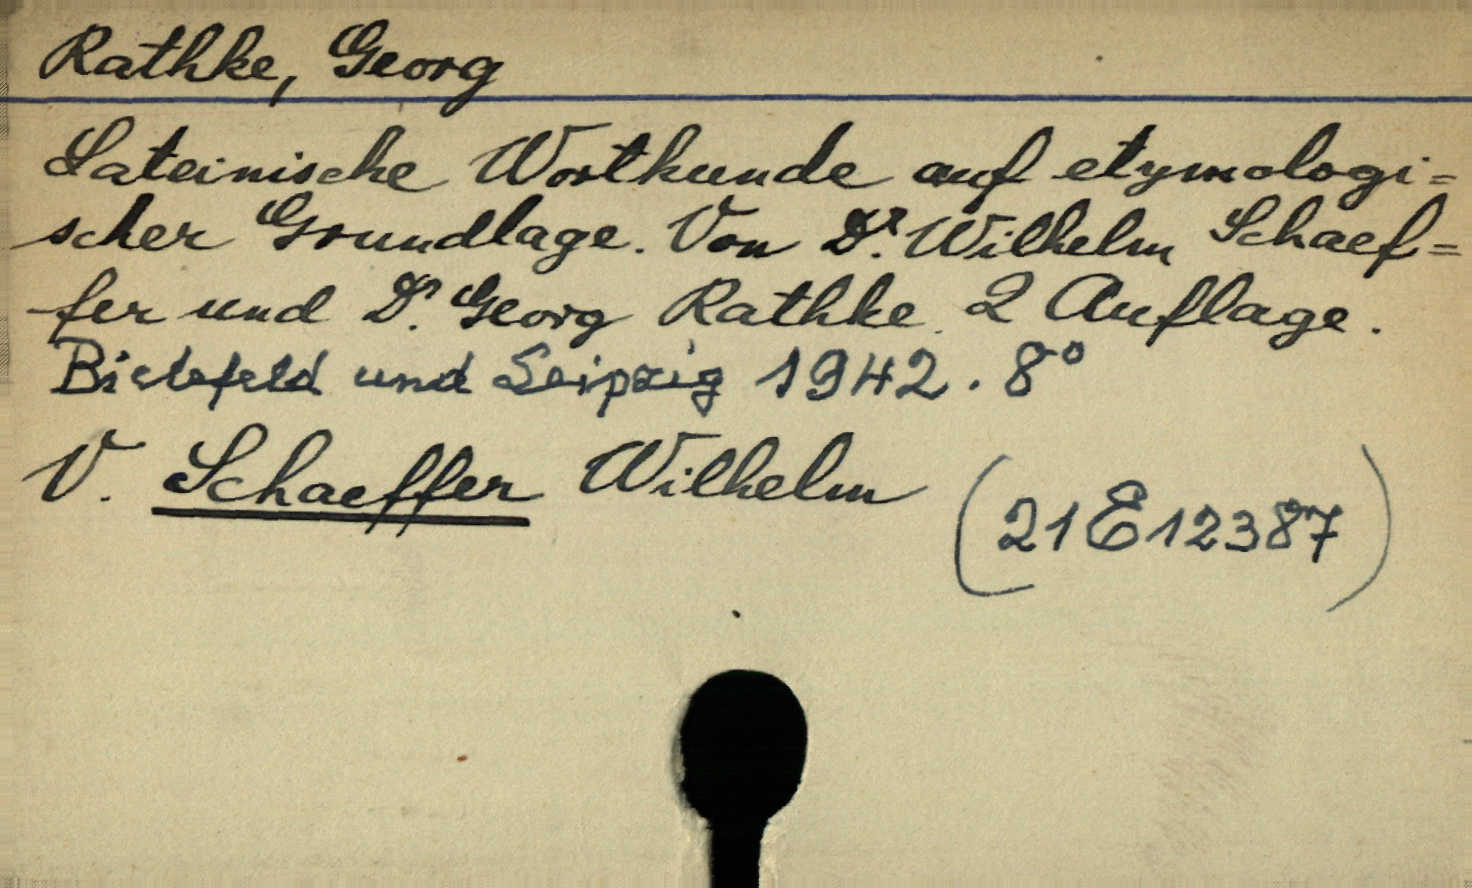 Rathke, Georg
Lateinische Wortkunde auf etymologi=
scher Grundlage. Von Dr. Wilhelm Schaef=
fer und Dr. Georg Rathke. 2 Auflage.
Bielefeld und Leipzig 1942. 8°
V. Schaeffer Wilhelm
(21E12387)